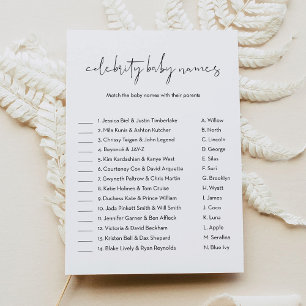 celebrity baby names
Match the baby names with their parents
1. Jessica Biel & Justin Timberlake A. Willow
2. Mila Kunis & Ashton Kutcher B. North
3. Chrissy Teigen & John Legend C. Lincoln
4. Beyoncé & JAY-Z D. George
5. Kim Kardashian & Kanye West E. Silas
6. Courteney Cox & David Arquette F. Suri
7. Gwyneth Paltrow & Chris Martin G. Brooklyn
8. Katie Holmes & Tom Cruise H. Wyatt
9. Duchess Kate & Prince William I. James
10. Jada Pinkett Smith & Will Smith J. Coco
11. Jennifer Garner & Ben Affleck K. Luna
12. Victoria & David Beckham L. Apple
13. Kristen Bell & Dax Shepard M. Serafina
14. Blake Lively & Ryan Reynolds N. Blue Ivy